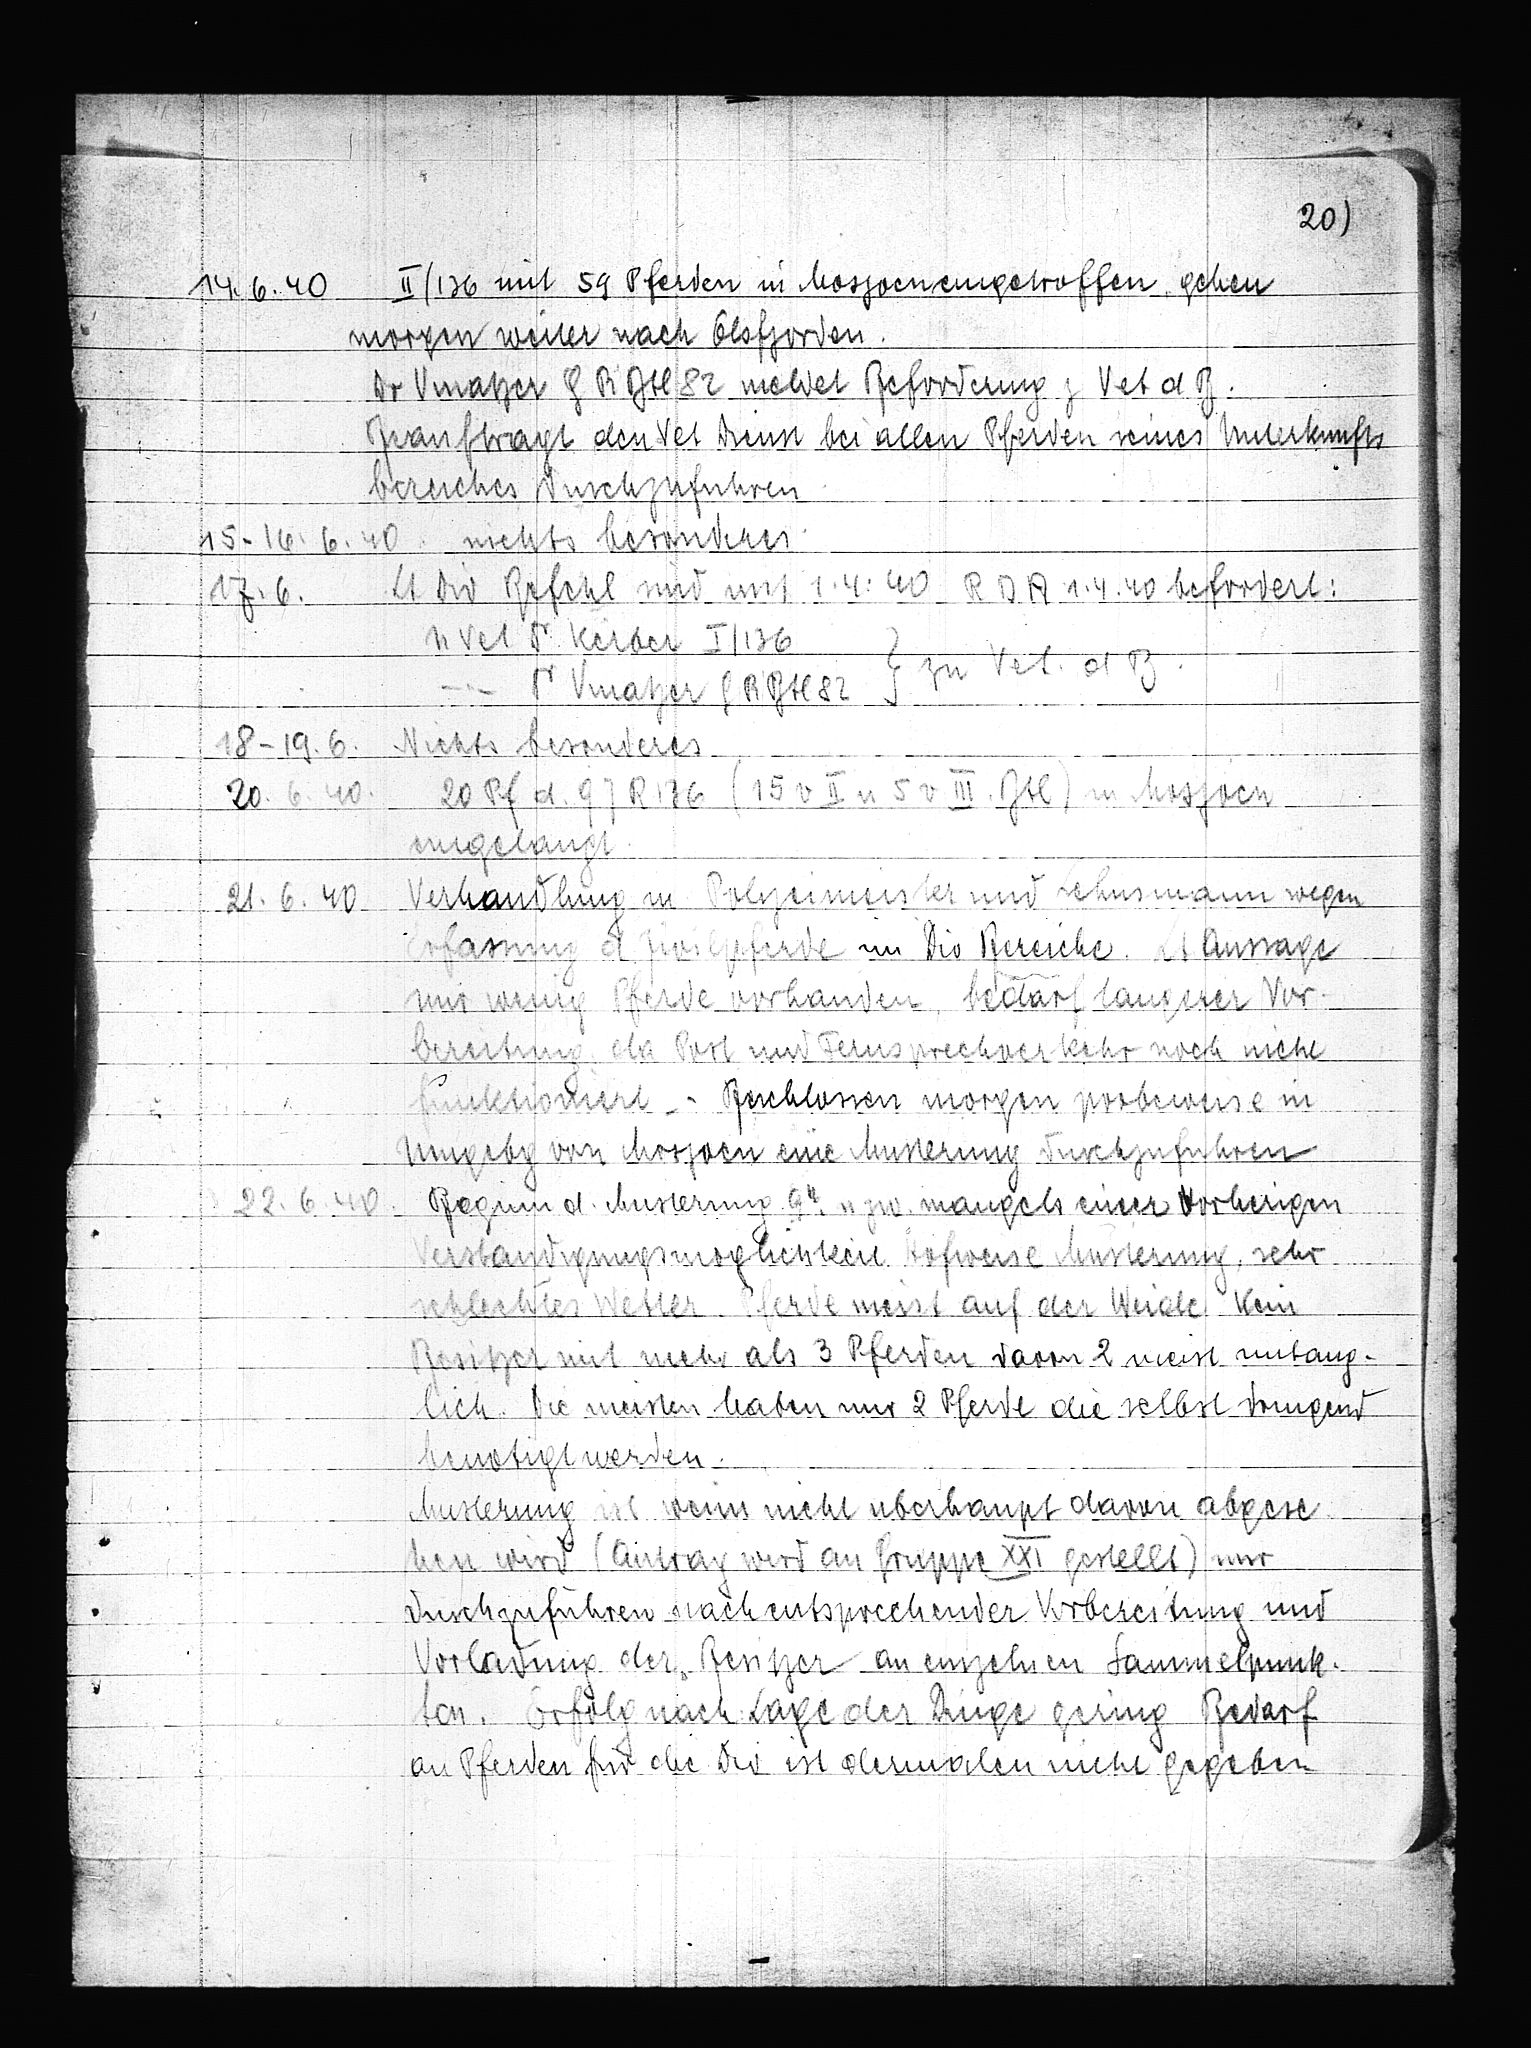 20)
14. 6. 40 II/136 mit 59 Pferden in Mosjoen eingetroffen, gehen
morgen weiter nach Elsfjorden.
Dr Vmatzer G R Btl 82 meldet Beforderung z Vet d B.
Beauftragt den Vet Dienst bei allen Pferden seines Unterkunfts
bereiches durchzufuhren
15-16. 6. 40. nichts besonderes.
17. 6. Lt Div Befehl sind mit 1. 4. 40 R D A 1. 4. 40 befordert:
U Vet Dr Kerber I/136
-"- Dr Vmatzer G R Btl 82 } zu Vet. d B.
18-19. 6. Nichts besonderes
20. 6. 40. 20 Pf d. G J R 136 (15 v II u 5 v III. Btl) in Mosjoen
eingelangt.
21. 6. 40 Verhandlung m Polizeimeister und Lehnsmann wegen
Erfassung d Zivilpferde im Div Bereiche. Lt Aussage
nur wenig Pferde vorhanden, bedarf langerer Vor-
bereitung, da Post und Fernsprechverkehr noch nicht
funktioniert -. Beschlossen morgen probeweise in
Umgebg von Mosjoen eine Musterung durchzufuhren
22. 6. 40. Beginn d. Musterung 9h u zw. mangels einer vorherigen
Verstandigungsmoglichkeit hofweise Musterung, sehr
schlechtes Wetter. Pferde meist auf der Weide. Kein
Besitzer mit mehr als 3 Pferden davon 2 meist untaug-
lich. Die meisten haben nur 2 Pferde die selbst dringend
benotigt werden.
Musterung ist wenn nicht uberhaupt davon abgese
hen wird (Antrag wird an Gruppe XXI gestellt) nur
durchzufuhren nach entsprechender Vorbereitung und
Vorladung der Besitzer an einzelnen Sammelpunk-
ten. Erfolg nach Lage der Dinge gering Bedarf
an Pferden fur die Div ist dermalen nicht gegeben